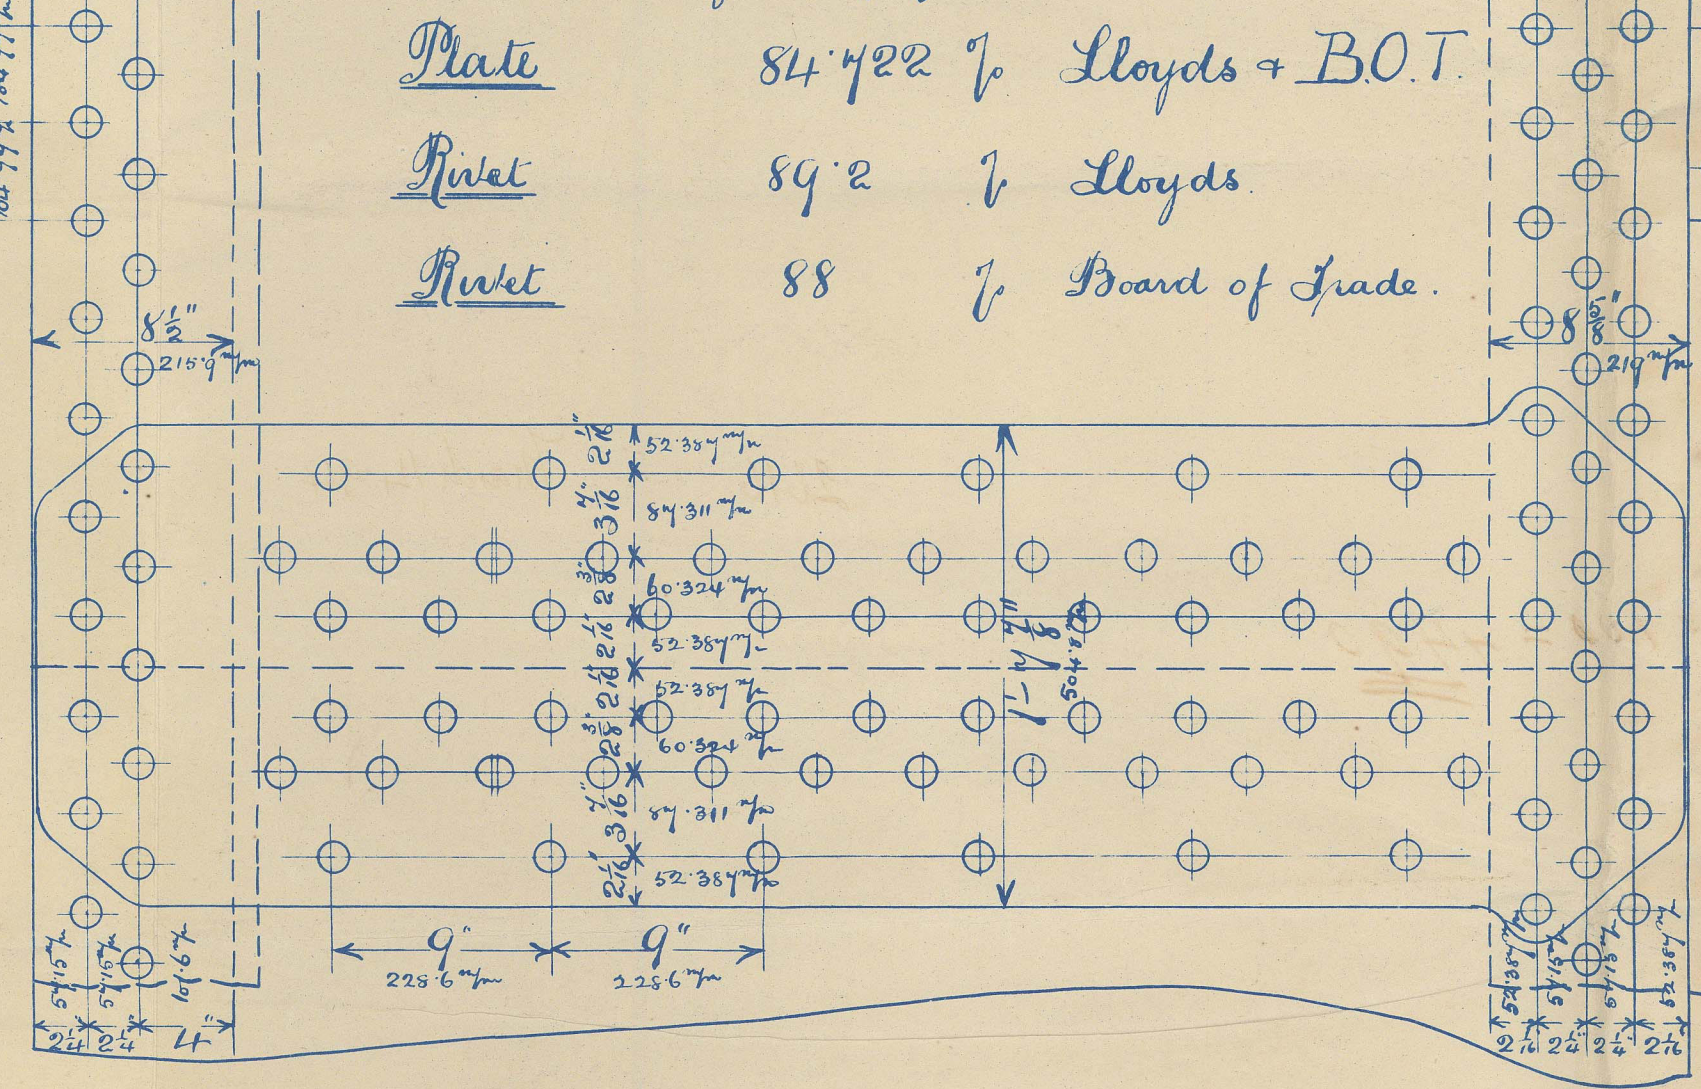 Plate 84·722 % Lloyds & B.O.T.
Rivet 89·2 % Lloyds.
Rivet 88 % Board of Trade.
8 1/2"
215·9 m/m
8 5/8"
219 m/m
2 1/16"
52·387 m/m
3 7/16"
87·311 m/m
2 3/8"
60·324 m/m
2 1/16"
52·387 m/m
1'-7 7/8"
504·8 m/m
2 1/16"
52·387 m/m
2 3/8"
60·324 m/m
3 7/16"
87·311 m/m
2 1/16"
52·387 m/m
9" 9"
228·6 m/m 228·6 m/m
57·15 m/m 57·15 m/m 101·6 m/m
2 1/4" 2 1/4" 4"
52·387 m/m 57·15 m/m 57·15 m/m 52·387 m/m
2 1/16" 2 1/4" 2 1/4" 2 1/16"